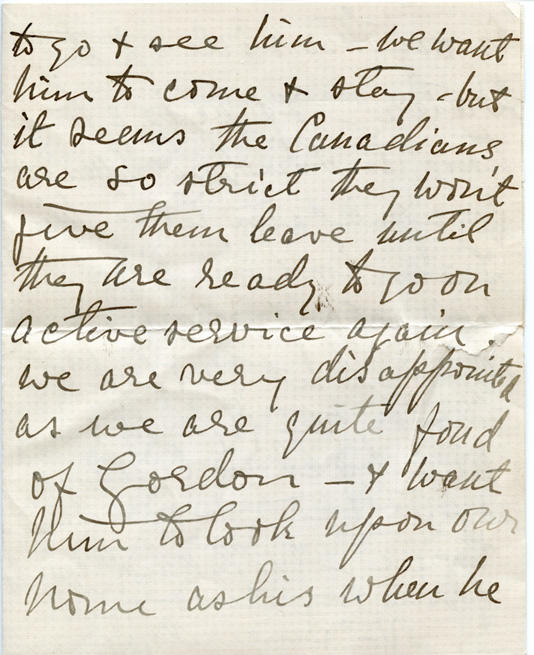 to go & see him - we want
him to come & stay - but
it seems the Canadians
are so strict they won't
give them leave until
they are ready to go on
active service again.
we are very disappointed
as we are quite fond
of Gordon - & want
him to look upon our
home as his when he